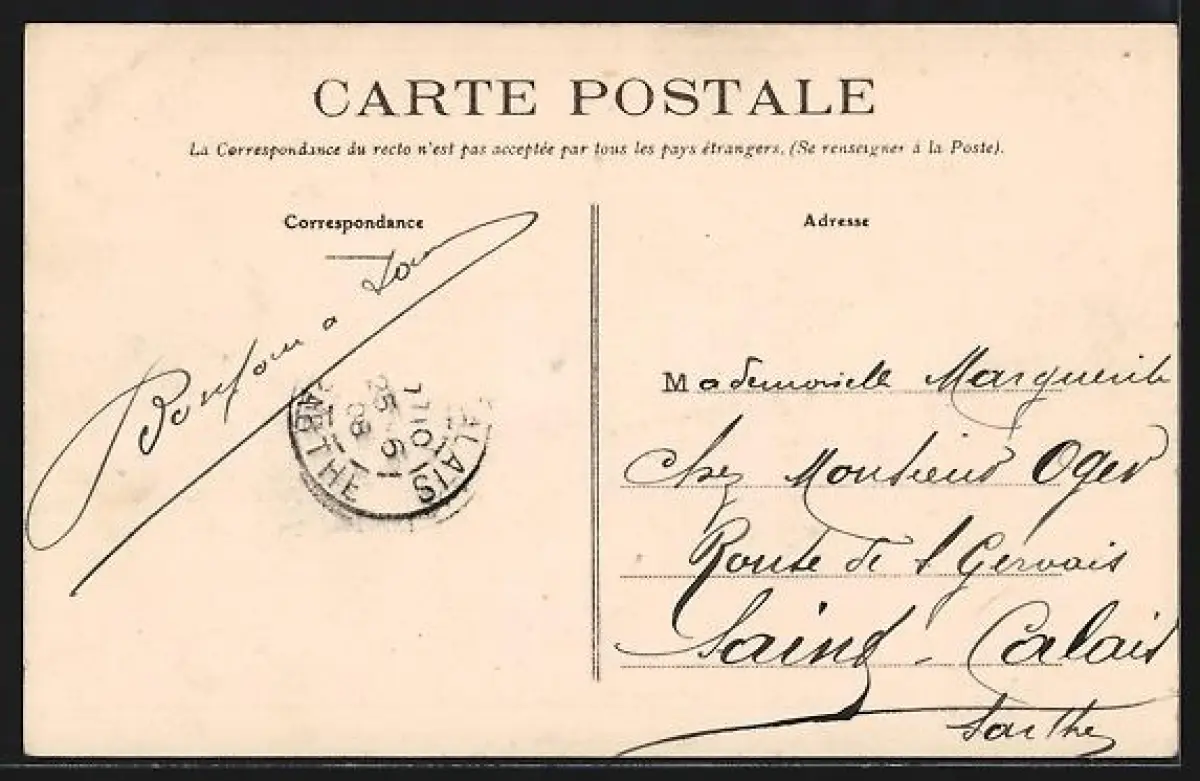 CARTE POSTALE
La Correspondance du recto n'est pas acceptée par tous les pays étrangers. (Se renseigner à la Poste).
Correspondance
à
ALAIS
SARTHE
17 10
25 - 6
08
Adresse
Mademoiselle Marguerite
Chez Monsieur Oger
Route de St Gervais
Saint-Calais
Sarthe